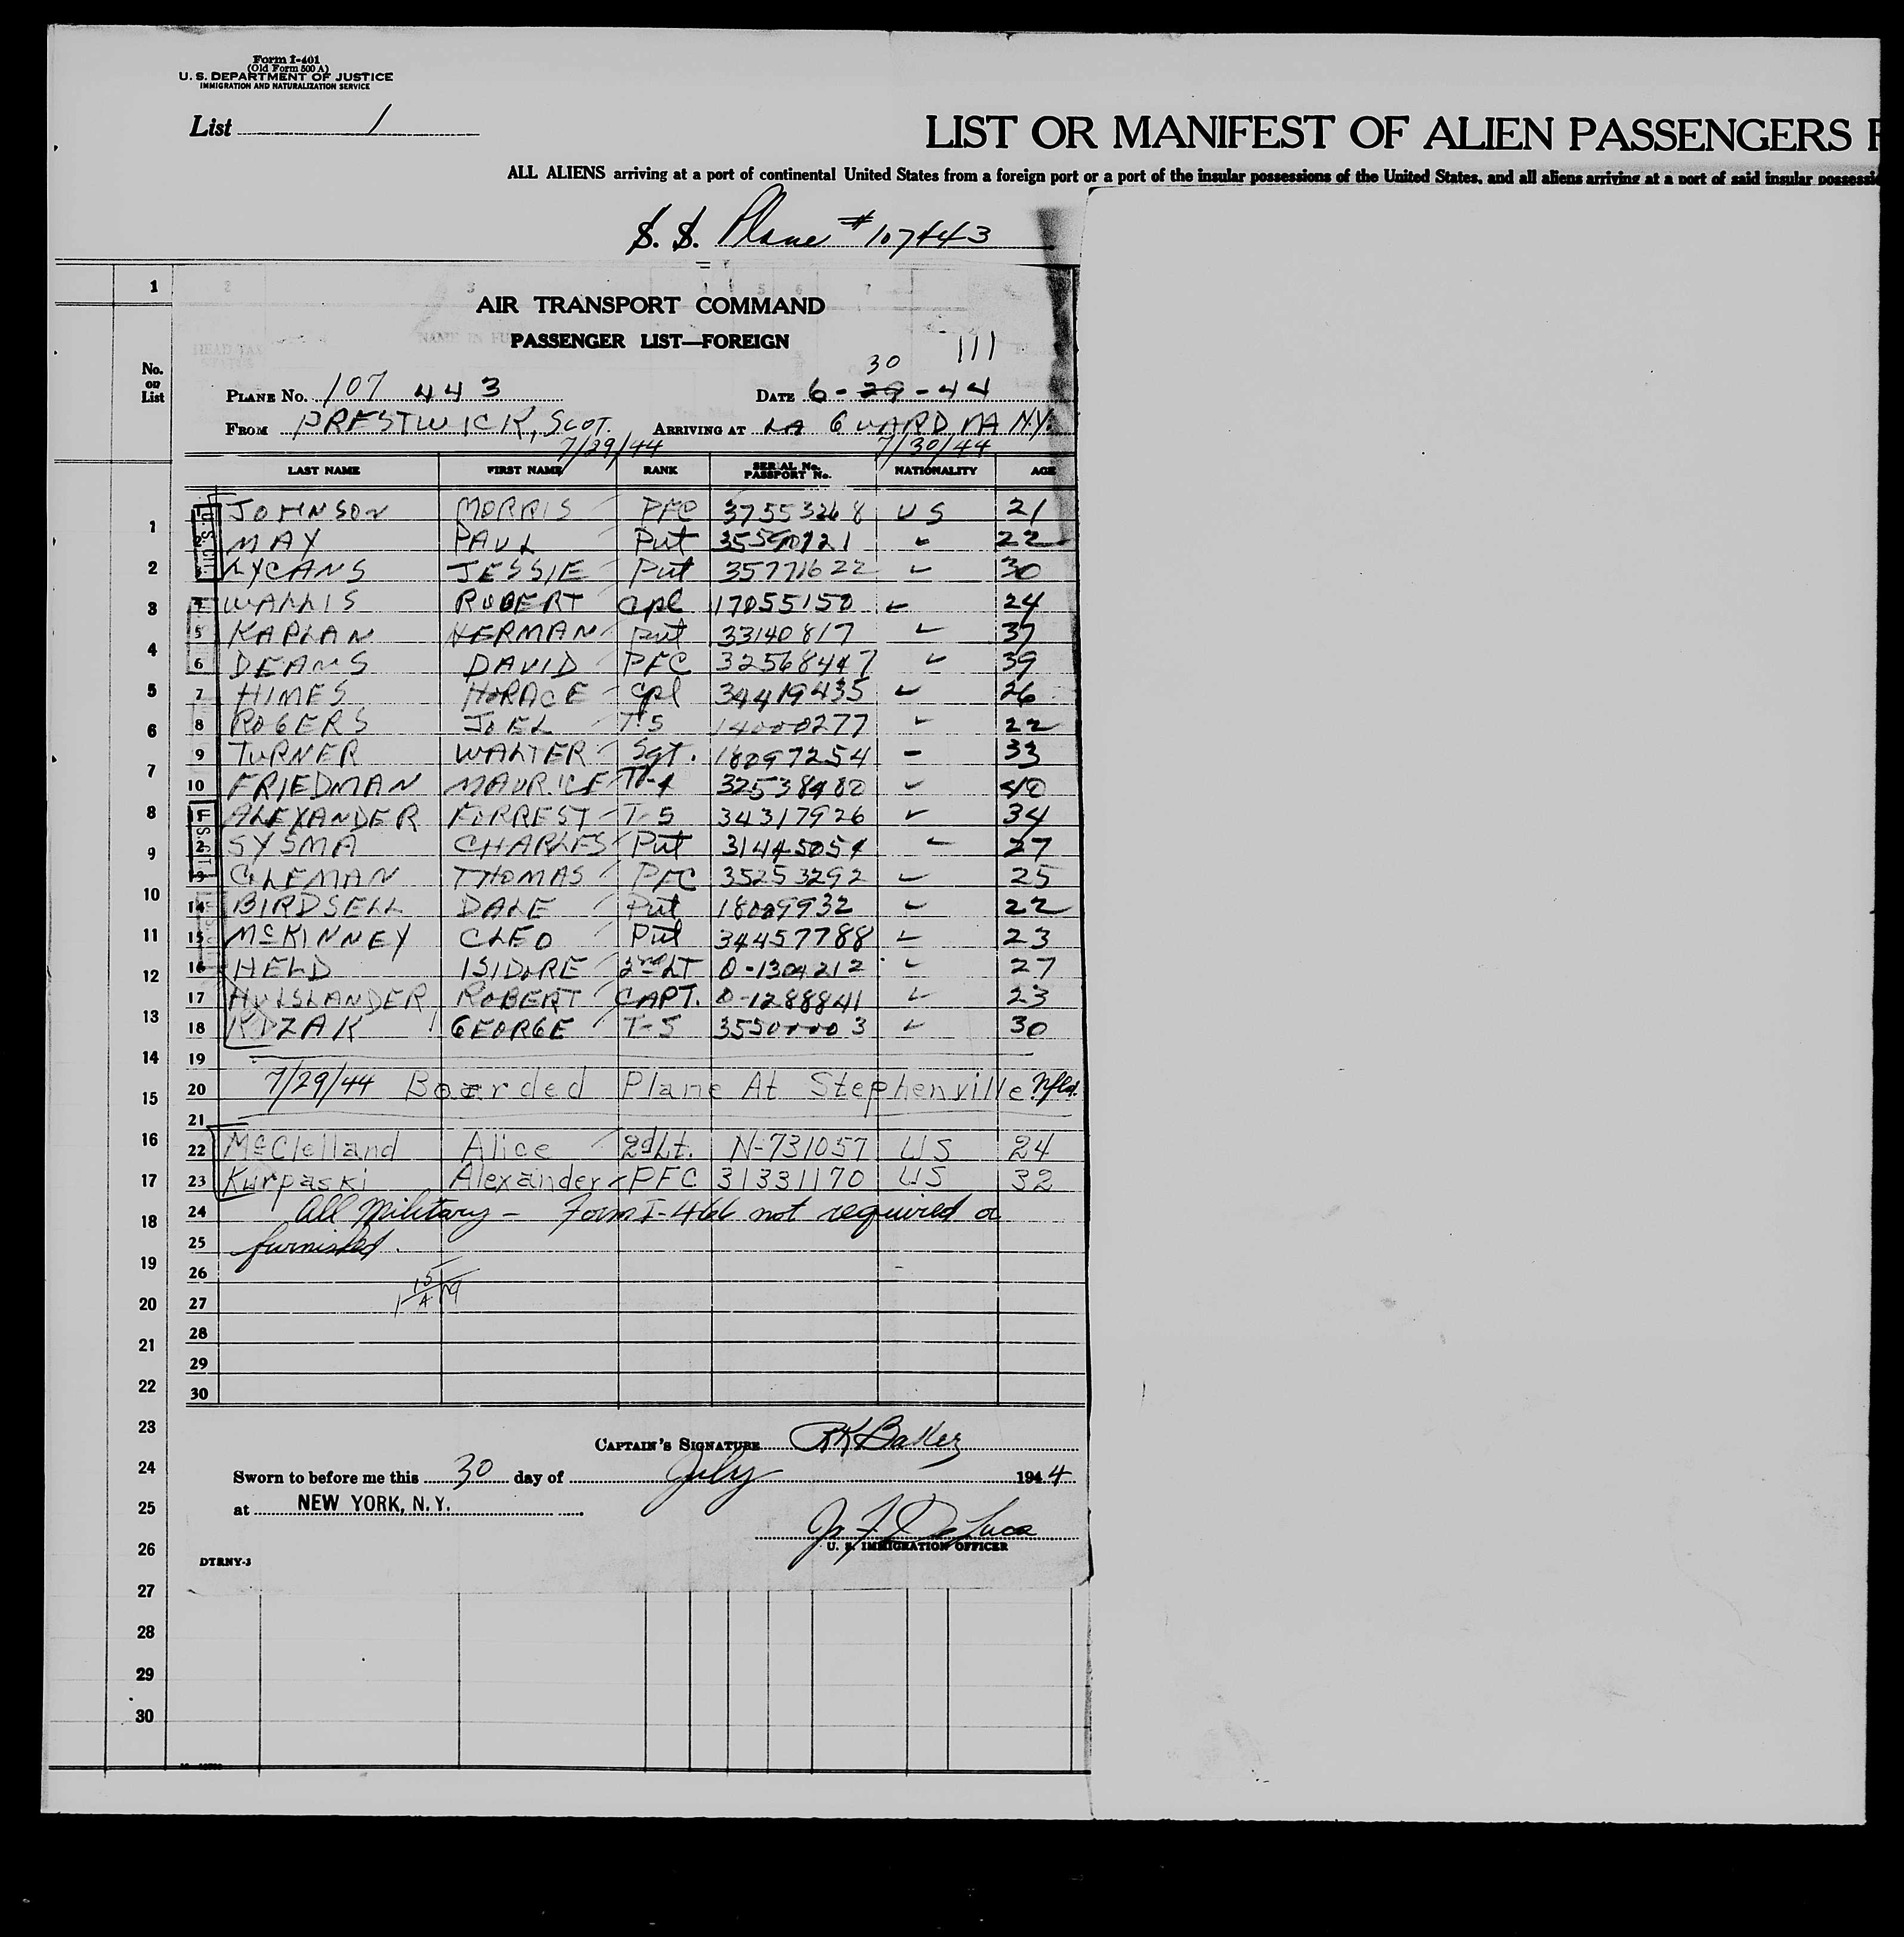 Form I-401
(Old Form 500 A)
U. S. DEPARTMENT OF JUSTICE
IMMIGRATION AND NATURALIZATION SERVICE
List 1
LIST OR MANIFEST OF ALIEN PASSENGERS F
ALL ALIENS arriving at a port of continental United States from a foreign port or a port of the insular possessions of the United States, and all aliens arriving at a port of said insular possessi
S. S. Plane # 107443
1
No. on List
AIR TRANSPORT COMMAND
PASSENGER LIST—FOREIGN
111
30
PLANE No. 107 443 DATE 6-29-44
FROM PRESTWICK, SCOT. ARRIVING AT LA GUARDIA N.Y.
7/29/44 7/30/44
LAST NAME FIRST NAME RANK SERIAL No. PASSPORT No. NATIONALITY AGE
JOHNSON MORRIS PFC 37553268 US 21
MAY PAUL Pvt 22
LYCANS JESSIE Pvt 35771622 30
WALLIS ROBERT Cpl 17055150 24
5 KAPLAN HERMAN Pvt 33140817 37
6 DEANS DAVID PFC 32568447 39
7 HIMES HORACE Cpl 34419435 26
8 ROGERS JOEL T-5 14000277 22
9 TURNER WALTER Sgt. 18097254 33
10 FRIEDMAN MAURICE 32538480 40
ALEXANDER FORREST T-5 34317926 34
SYSMA CHARLES Pvt 31445054 27
THOMAS PFC 35253292 25
14 BIRDSELL DALE Pvt 18009932 22
15 McKINNEY CLEO Pvt 34457788 23
16 HELD ISIDORE 2nd LT O-1304212 27
17 HULSLANDER ROBERT CAPT. O-1288841 23
18 KOZAK GEORGE T-5 35500003 30
19
20 7/29/44 Boarded Plane At Stephenville Nfld.
21
22 McClelland Alice 2d Lt. N-731057 US 24
23 Kurpaski Alexander PFC 31331170 US 32
24 All Military - Form I-466 not required or
25 furnished.
26
27
28
29
30
CAPTAIN'S SIGNATURE RK Bailey
Sworn to before me this 30 day of July 1944
at NEW YORK, N. Y.
J. F. DeLuca
U. S. IMMIGRATION OFFICER
DTRNY-3
1
2
3
4
5
6
7
8
9
10
11
12
13
14
15
16
17
18
19
20
21
22
23
24
25
26
27
28
29
30